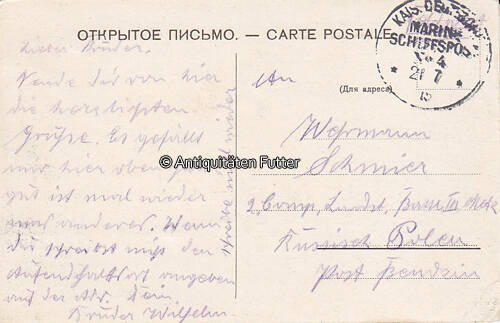 ОТКРЫТОЕ ПИСЬМО. — CARTE POSTALE.
KAIS. DEUTSCHE
MARINE
SCHIFFSPOST
No 4
* 21 7 *
15
(Для адреса)
Lieber Bruder.
Sende dir von hier
die herzlichsten
Grüße. Es gefällt
mir hier
gut ist mal wieder
was anderes. Wenn
du schreibst mußt den
Aufenthaltsort angeben
auf der Adr. Dein
Bruder Wilhelm.
schreibe mal wieder
© Antiquitäten Futter
An
Wehrmann
Schmier
2 Comp. Landst. Batt. III Metz
Russisch Polen
Post Bendzin